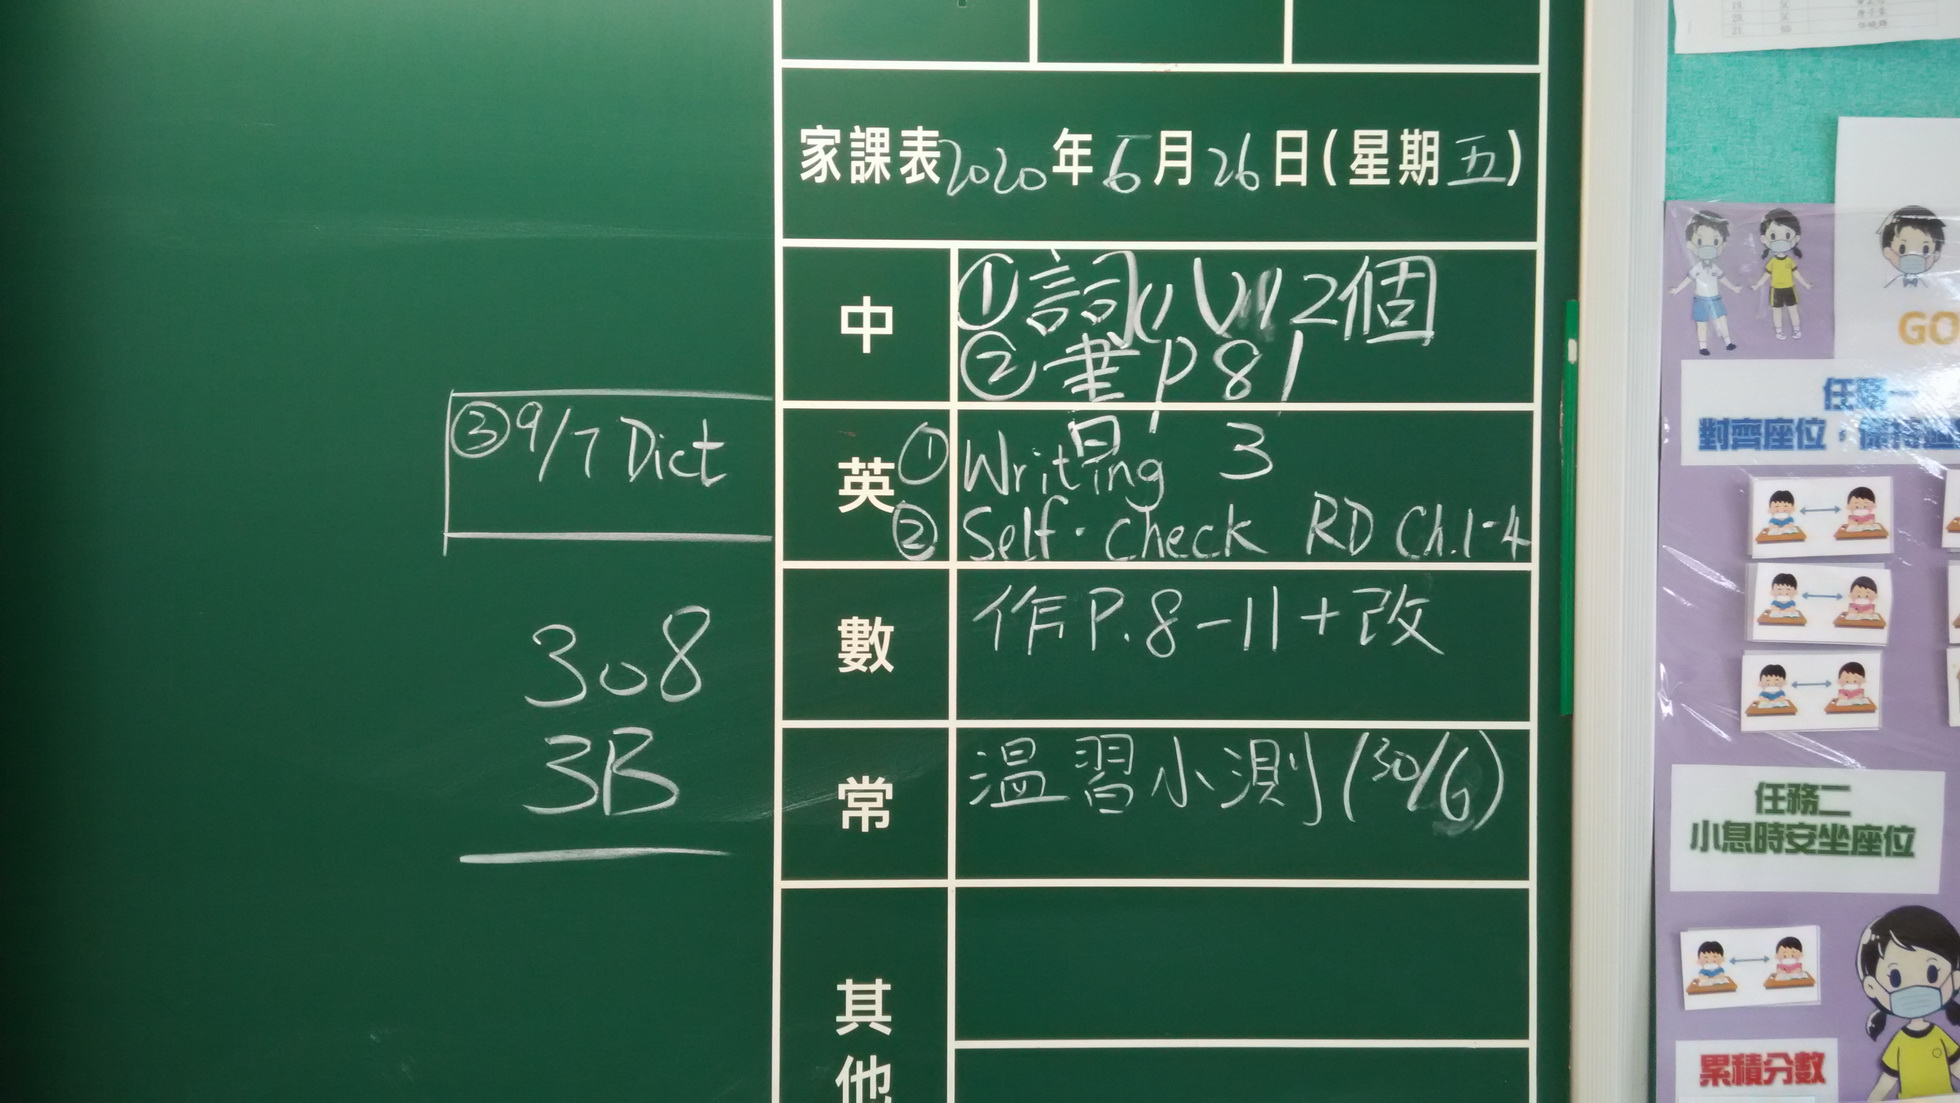 家課表2020年6月26日(星期五)
中
①詞 12個
②書P81
英
①Writing 3
②Self-check RD Ch.1-4
③9/7 Dict
308
3B
數
作P.8-11+改
常
溫習小測(30/6)
其他
GO
任務一
對齊座位,
任務二
小息時安坐座位
累積分數